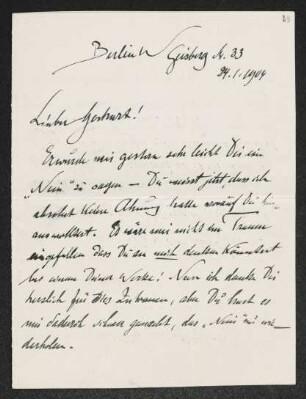 Berlin W Geisberg str. 33
24.1.1904
Lieber Gerhart!
Es wurde mir gestern sehr leicht Dir ein
„Nein“ zu sagen — Du musst jetzt, dass ich
absolut keine Ahnung hatte worauf Du hin-
auswolltest. Es wäre mir nicht im Traum
eingefallen dass Du an mich denken könntest
bei einem Deiner Werke! Nun ich danke Dir
herzlich für Dies Zutrauen, aber Du hast es
mir dadurch schwer gemacht, das „Nein“ zu wie-
derholen.